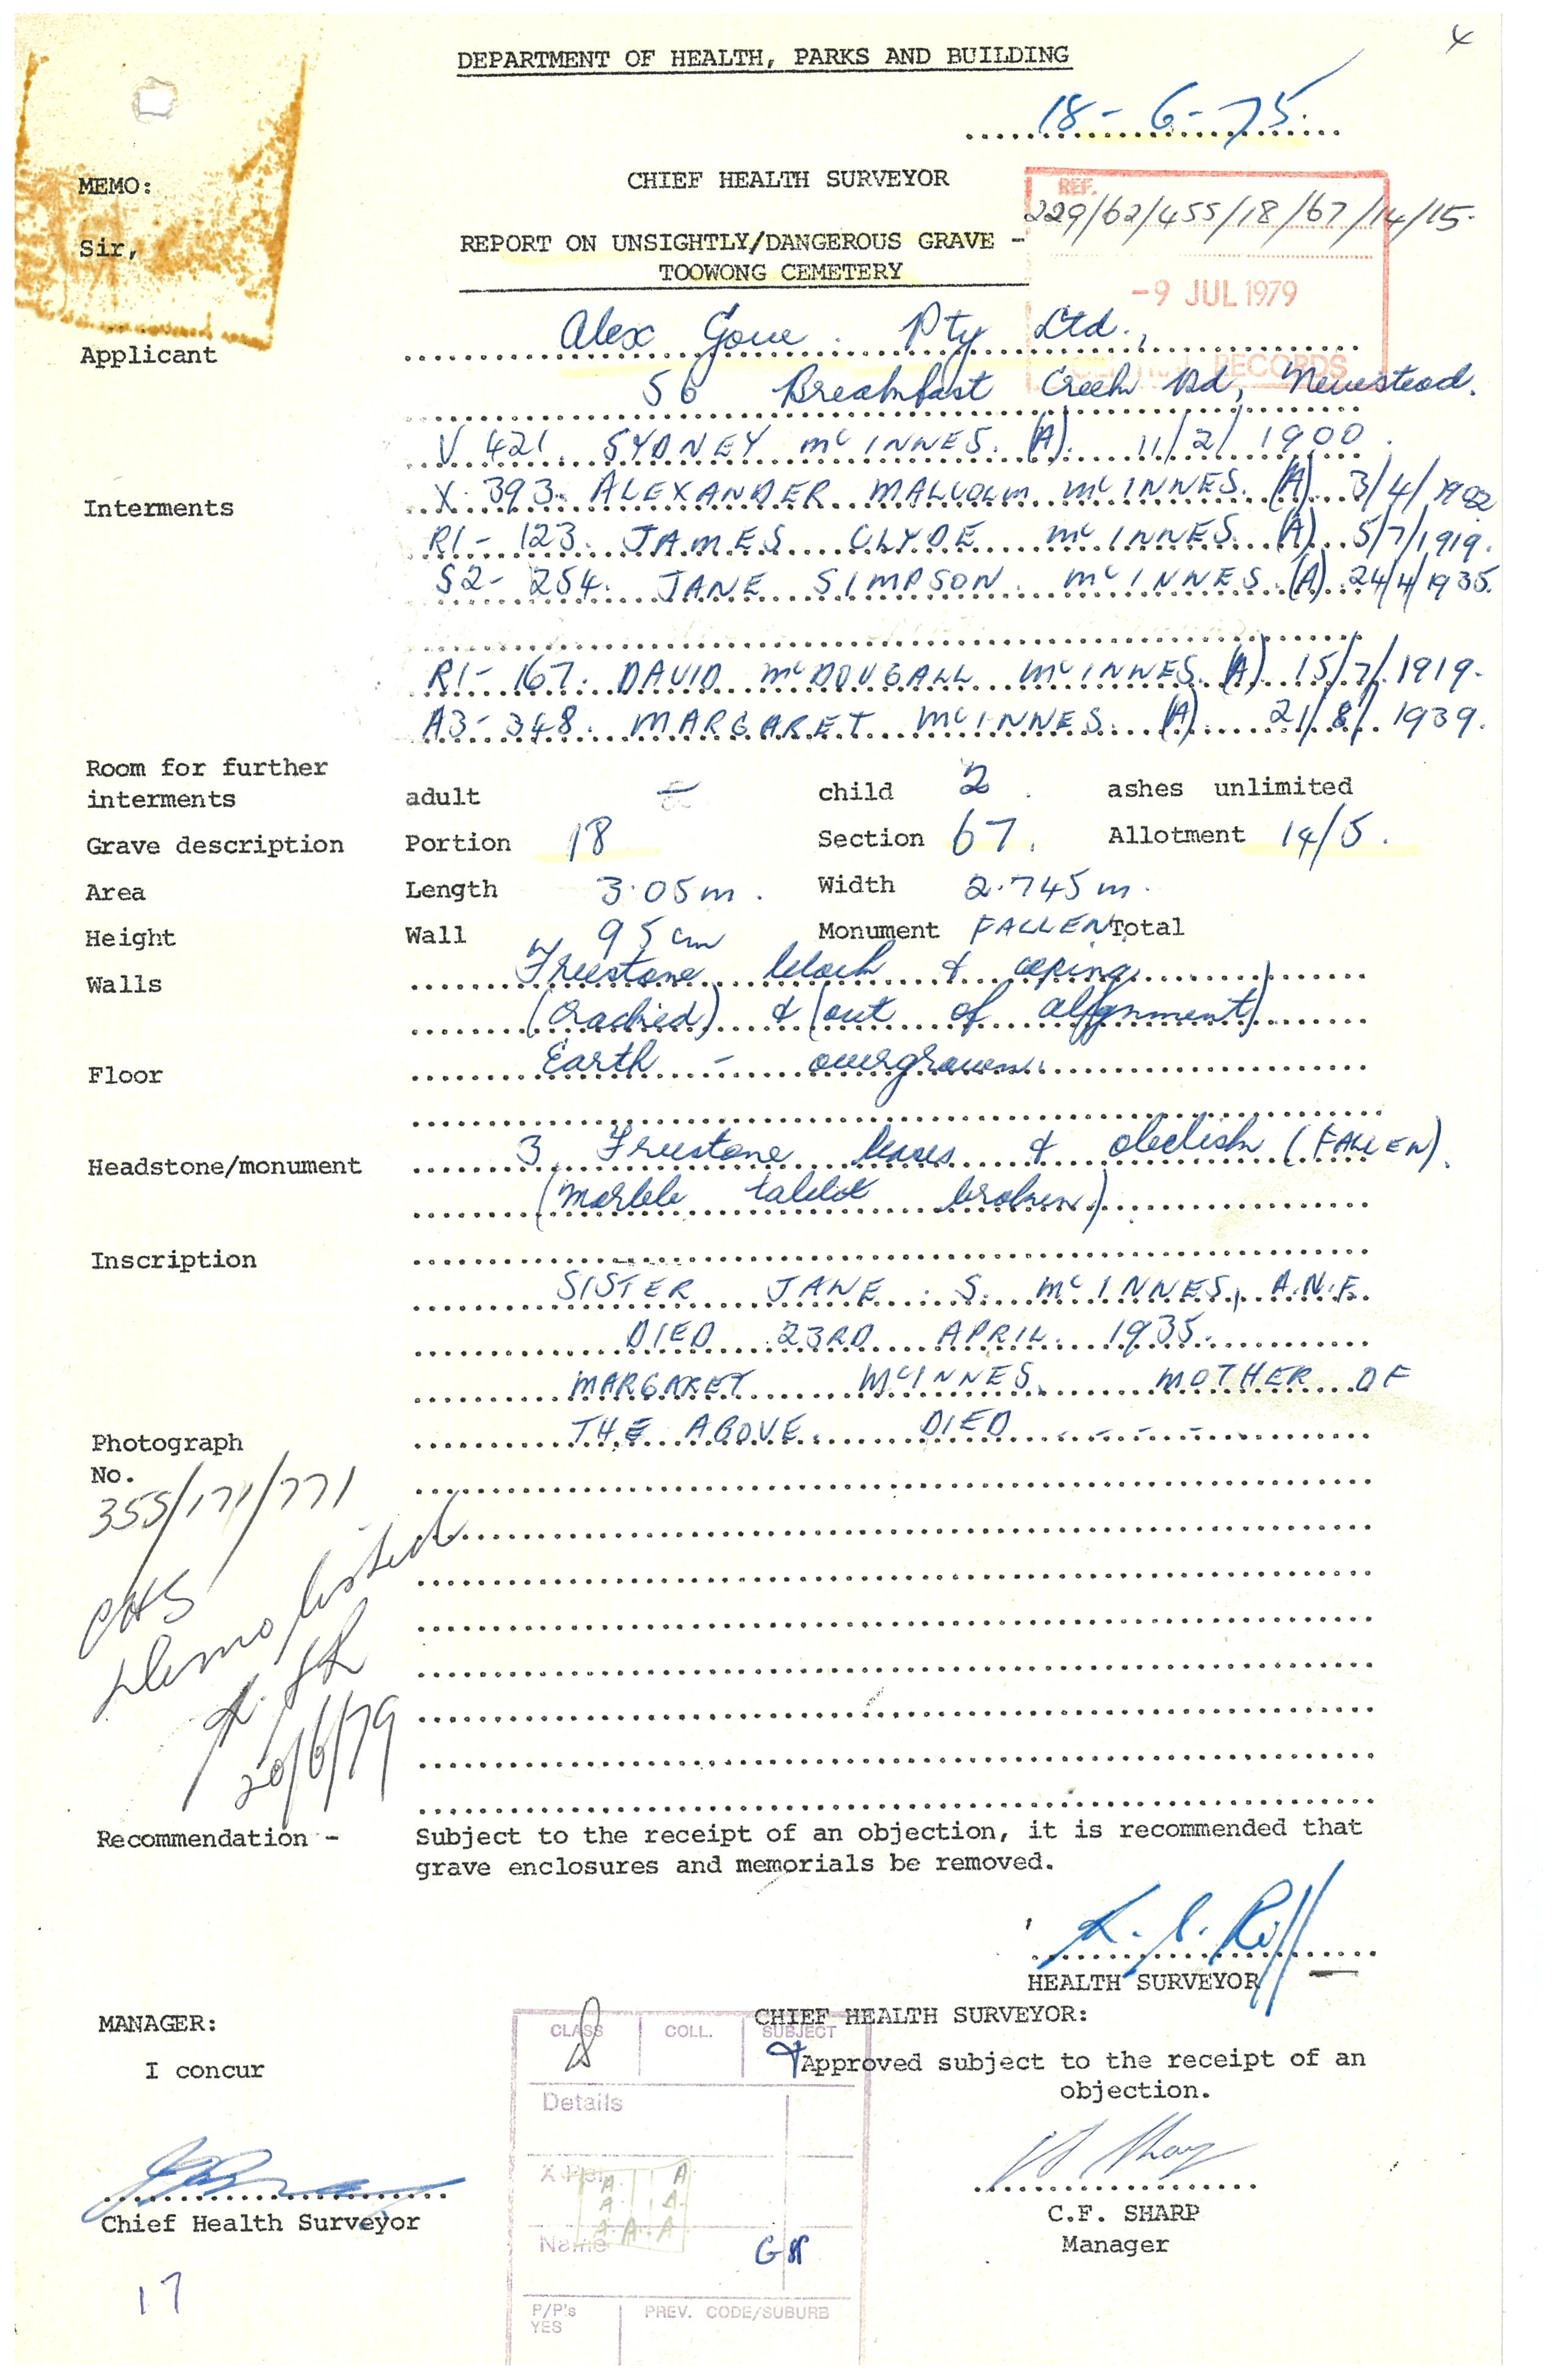 4
DEPARTMENT OF HEALTH, PARKS AND BUILDING
18-6-75.
MEMO:
CHIEF HEALTH SURVEYOR
REF.
229/62/455/18/67/14/15.
Sir,
REPORT ON UNSIGHTLY/DANGEROUS GRAVE -
TOOWONG CEMETERY
-9 JUL 1979
RECORDS
Applicant
Alex Gow Pty Ltd.,
56 Breakfast Creek Rd, Newstead.
V 421. SYDNEY McINNES. (A). 11/2/1900.
Interments
X.393. ALEXANDER MALCOLM McINNES. (A). 3/4/1902
R1-123. JAMES CLYDE McINNES. (A). 5/7/1919.
S2-254. JANE SIMPSON McINNES. (A) 24/4/1935.
R1-167. DAVID McDOUGALL McINNES. (A). 15/7/1919.
A3-348. MARGARET McINNES. (A). 21/8/1939.
Room for further
interments adult - child 2. ashes unlimited
Grave description Portion 18 Section 67. Allotment 14/5.
Area Length 3.05m. Width 2.745m.
Height Wall 95cm Monument FALLEN Total
Walls
Freestone block & coping
(Cracked) & (out of alignment)
Floor
Earth - overgrown.
Headstone/monument
3 Freestone bases & obelisk (FALLEN).
(Marble tablet broken)
Inscription
SISTER JANE S. McINNES, A.N.F.
DIED 23RD APRIL. 1935.
MARGARET McINNES. MOTHER OF
THE ABOVE. DIED - - - -
Photograph
No.
355/171/771
CHS
Demolished
20/6/79
Recommendation -
Subject to the receipt of an objection, it is recommended that
grave enclosures and memorials be removed.
HEALTH SURVEYOR
MANAGER:
CHIEF HEALTH SURVEYOR:
CLASS COLL. SUBJECT
I concur
Approved subject to the receipt of an
objection.
Details
Name
Chief Health Surveyor
C.F. SHARP
Manager
17
P/P's
YES
PREV. CODE/SUBURB